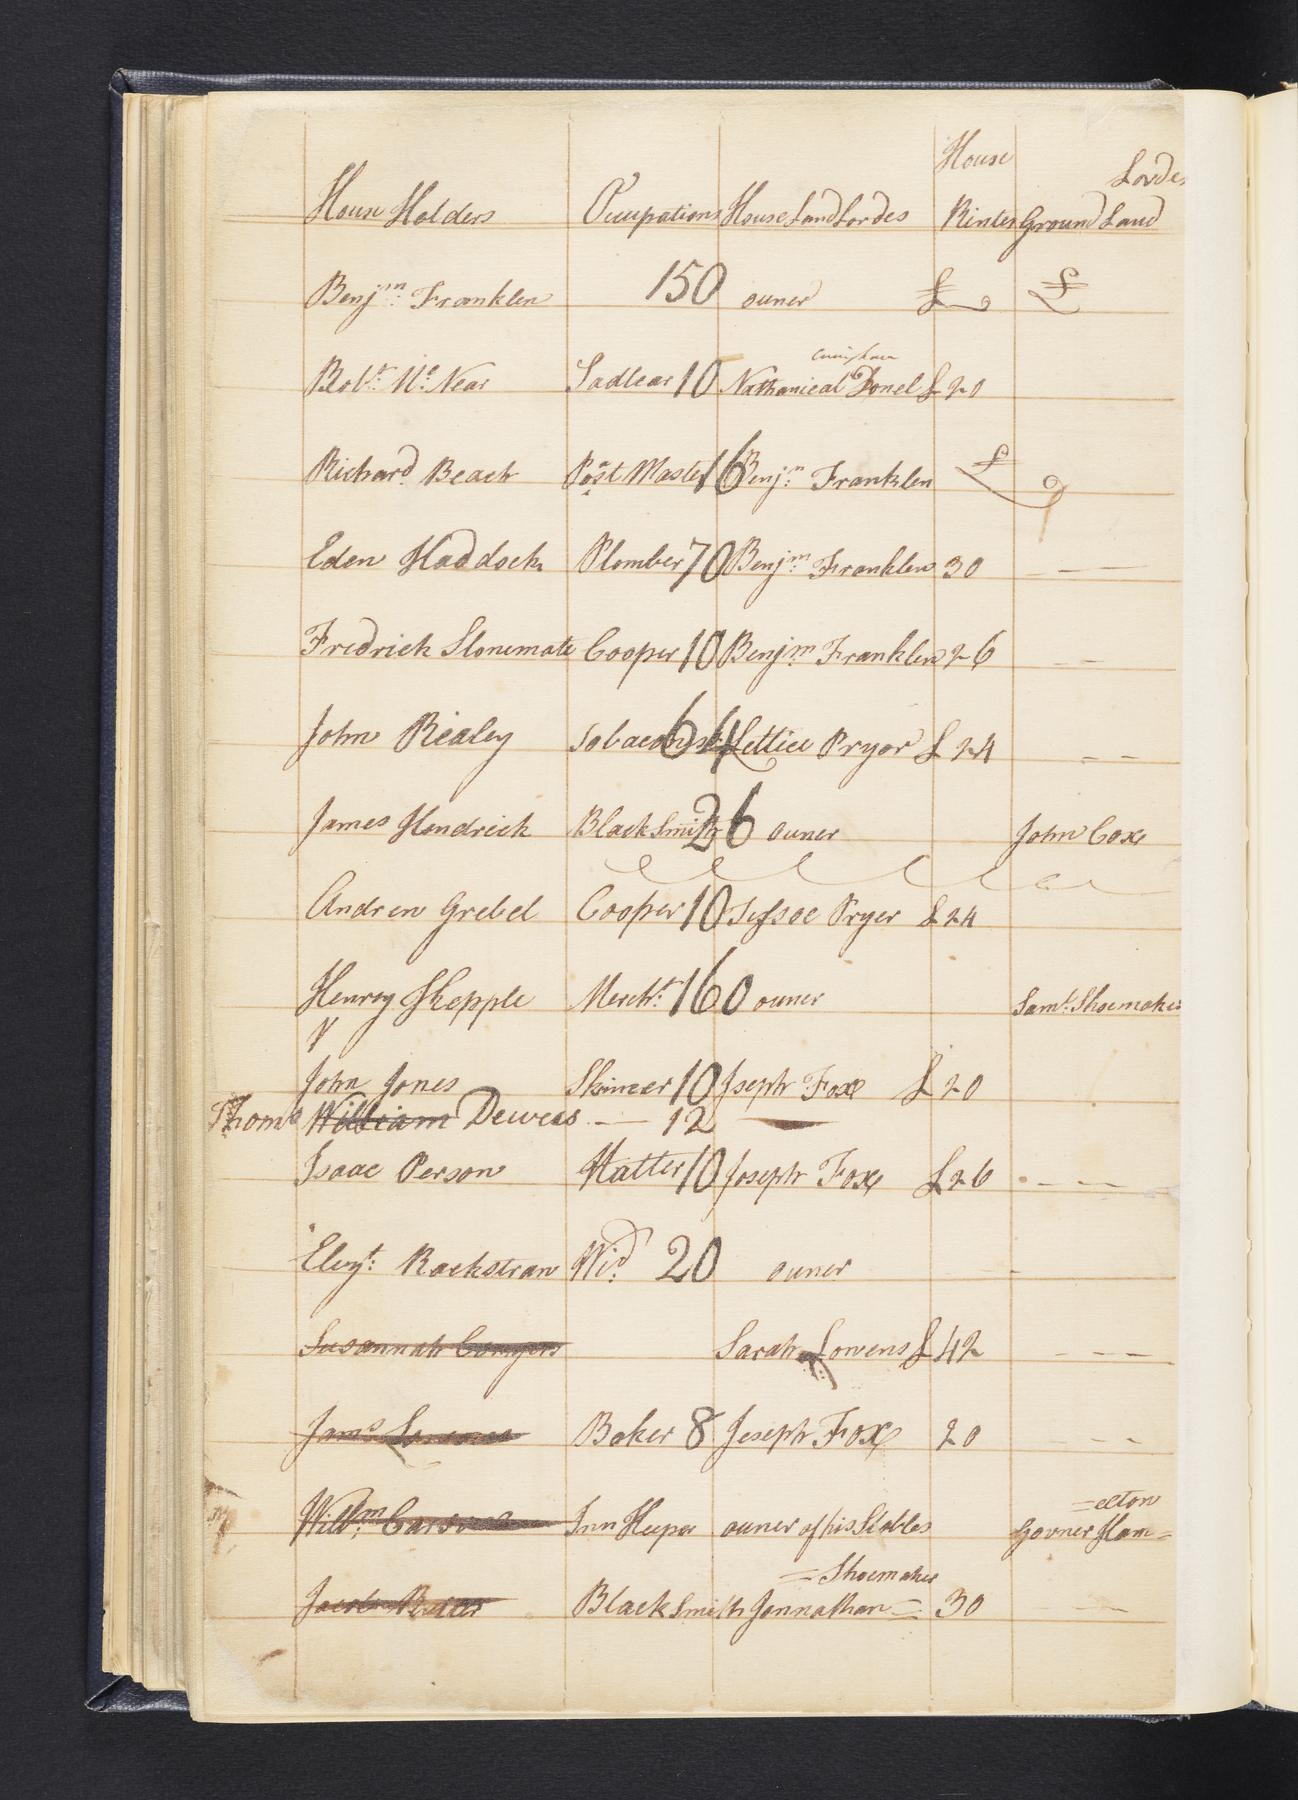 House
Lordes
House Holders Ocupations House LandLordes Rintes Ground Land
Benjm: Franklen 150 ouner £ £
cuningham
Robt: Mc: Near Sadlear 10 Nathanieal Donel £ 20
Richard Beach Post Master 16 Benjn: Franklen £
Eden Haddock Plomber 70 Benjm: Franklen 30 — —
Fredrick Stonemate Cooper 10 Benjm Franklen 26 — —
John Realey Tobaconist 64 Lettice Pryor £ 24 — —
James Hendrick Black Smith 26 ouner John Cox
Andrew Grebel Cooper 10 Pryer £ 24
Henrey Shepple Mercht: 160 ouner Saml: Shoemaker
John Jones Skinner 10 Joseph Fox £ 20
Thoms William Dewees — 12 —
Isaac Person Hatter 10 Joseph Fox £ 26 — —
Elezt: Rackstraw Wid 20 ouner
Susannah Conyers Sarah Lowens £ 42 — — —
Jams Baker 8 Joseph Fox 20 — —
=elton
Willm: Inn Keeper ouner of his Stables Govner Ham=
=Shoemaker
Jacob Black Smith Jonnathan = 30 —